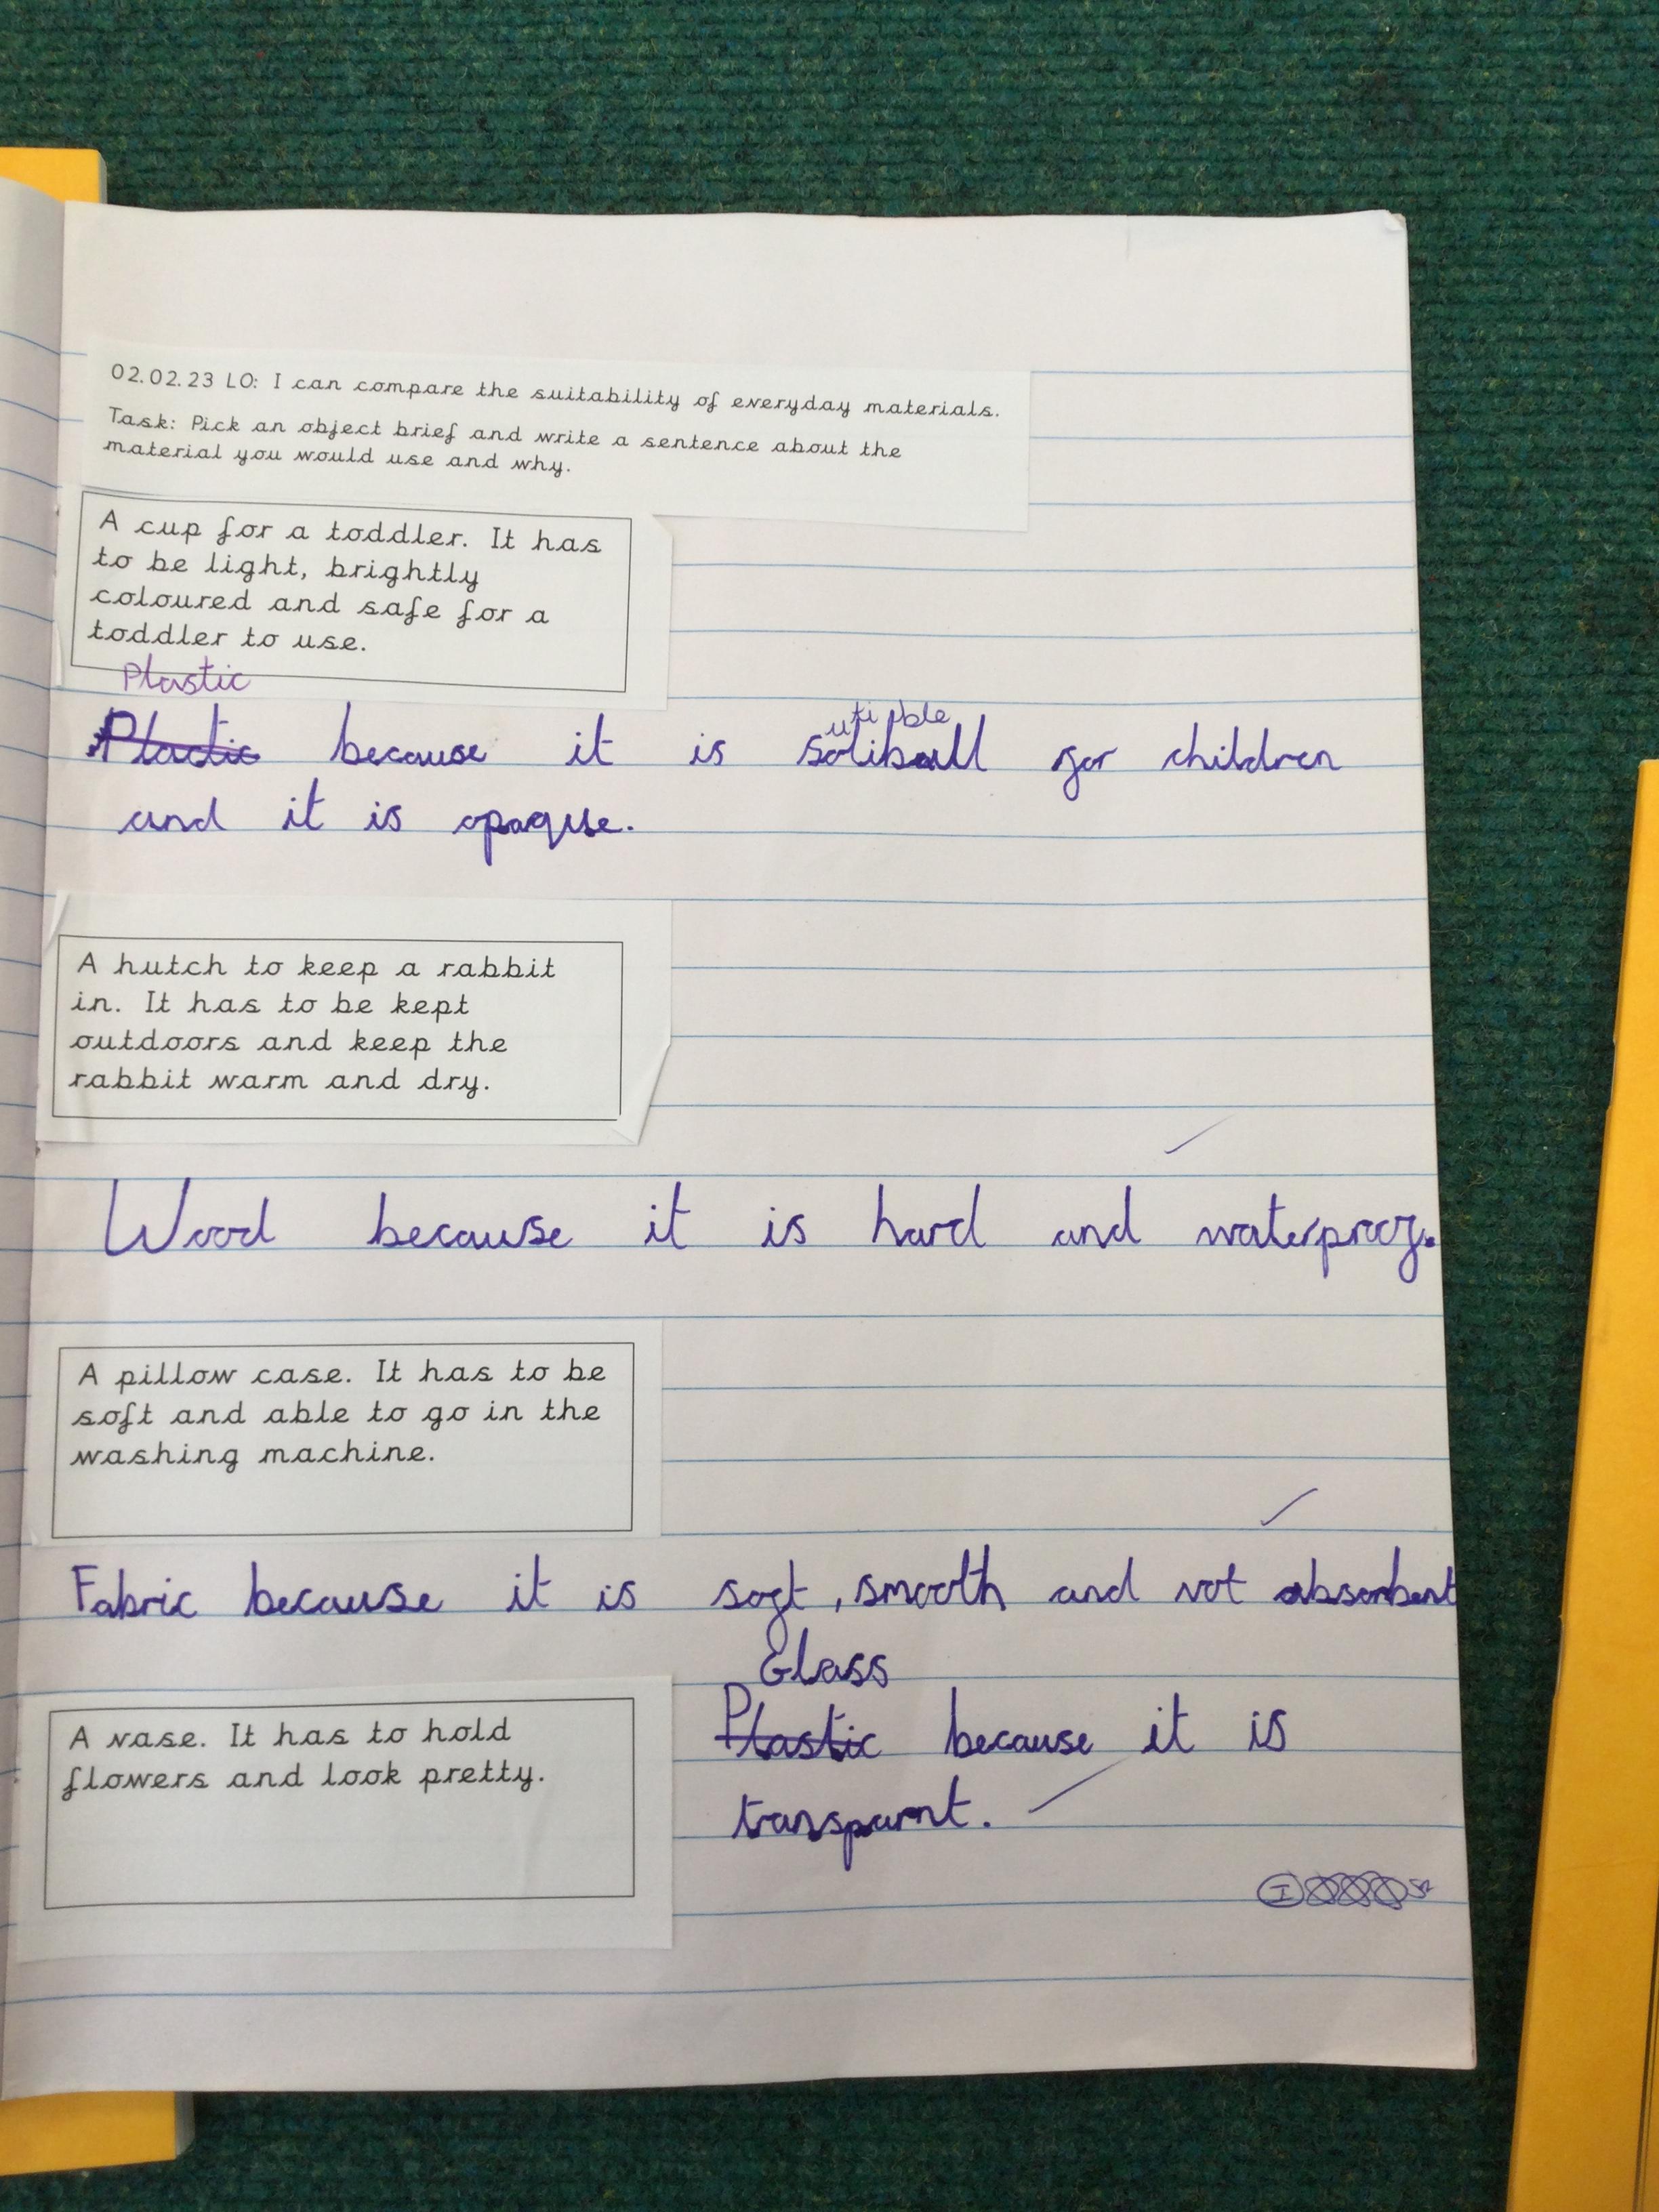 02.02.23 LO: I can compare the suitability of everyday materials.
Task: Pick an object brief and write a sentence about the
material you would use and why.
A cup for a toddler. It has
to be light, brightly
coloured and safe for a
toddler to use.
Plastic
Plactic because it is for children
and it is opaque.
A hutch to keep a rabbit
in. It has to be kept
outdoors and keep the
rabbit warm and dry.
Wood because it is hard and waterproof.
A pillow case. It has to be
soft and able to go in the
washing machine.
Fabric because it is soft, smooth and not absorbent
Glass
A vase. It has to hold
flowers and look pretty.
Plastic because it is
transparnt.